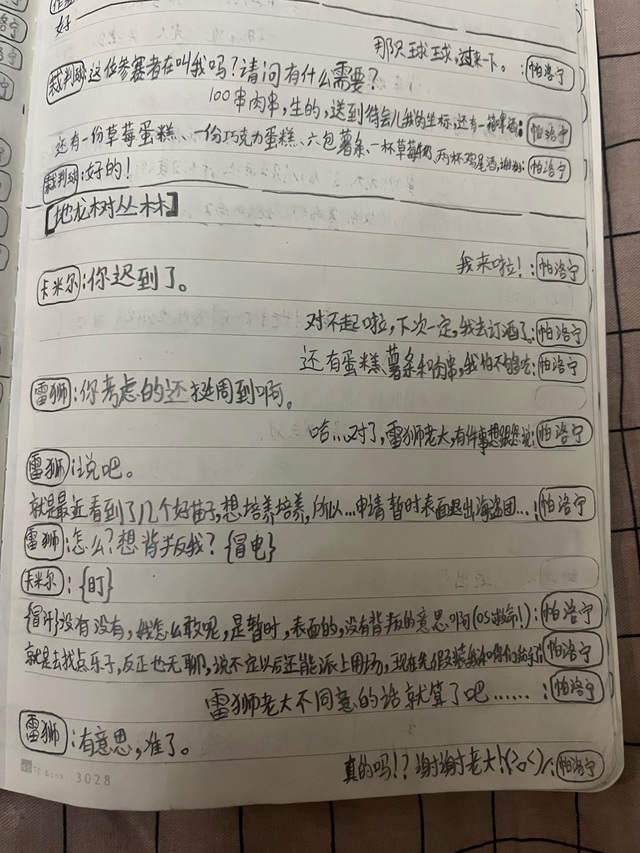 好
那只球球,过来一下。:帕洛宁
裁判球:这位参赛者在叫我吗?请问有什么需要?
100串肉串,生的,送到待会儿我的坐标,还有一箱啤酒:帕洛宁
还有一份草莓蛋糕、一份巧克力蛋糕、六包薯条、一杯草莓奶,两杯鸡尾酒,谢谢:帕洛宁
裁判球:好的!
[地龙树丛林]
我来啦!:帕洛宁
卡米尔:你迟到了。
对不起啦,下次一定,我去订酒了:帕洛宁
还有蛋糕、薯条和肉串,我怕不够吃:帕洛宁
雷狮:你考虑的还挺周到啊。
哈...对了,雷狮老大,有件事想跟您说:帕洛宁
雷狮:说吧。
就是最近看到了几个好苗子,想培养培养,所以...申请暂时表面退出海盗团...:帕洛宁
雷狮:怎么?想背叛我?{冒电}
卡米尔:{盯}
{冒汗}没有没有,我怎么敢呢,是暂时,表面的,没有背叛的意思啊(OS救命!):帕洛宁
就是去找点乐子,反正也无聊,说不定以后还能派上用场,现在先假装我和你们:帕洛宁
雷狮老大不同意的话就算了吧......:帕洛宁
雷狮:有意思,准了。
真的吗!?谢谢老大!(>o<)/:帕洛宁
NOTE Book 3028